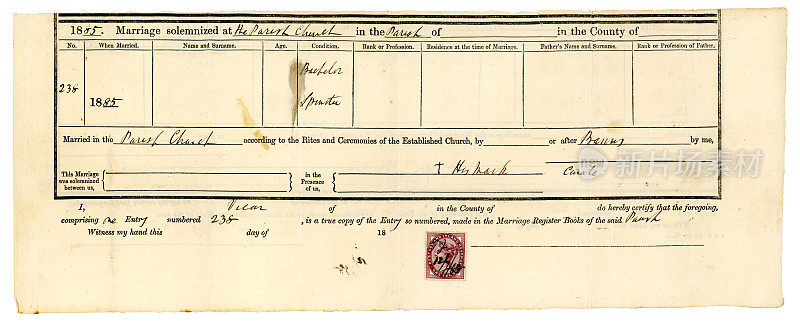 1885. Marriage solemnized at the Parish Church in the Parish of in the County of
No. When Married. Name and Surname. Age. Condition. Rank or Profession. Residence at the time of Marriage. Father's Name and Surname. Rank or Profession of Father.
Bachelor
238
1885 Spinster
Married in the Parish Church according to the Rites and Ceremonies of the Established Church, by or after Banns by me,
† His Mark Curate
This Marriage was solemnized between us, in the Presence of us,
I, Vicar of in the County of do hereby certify that the foregoing,
comprising one Entry numbered 238, is a true copy of the Entry so numbered, made in the Marriage Register Books of the said Parish
Witness my hand this day of 18
iStock